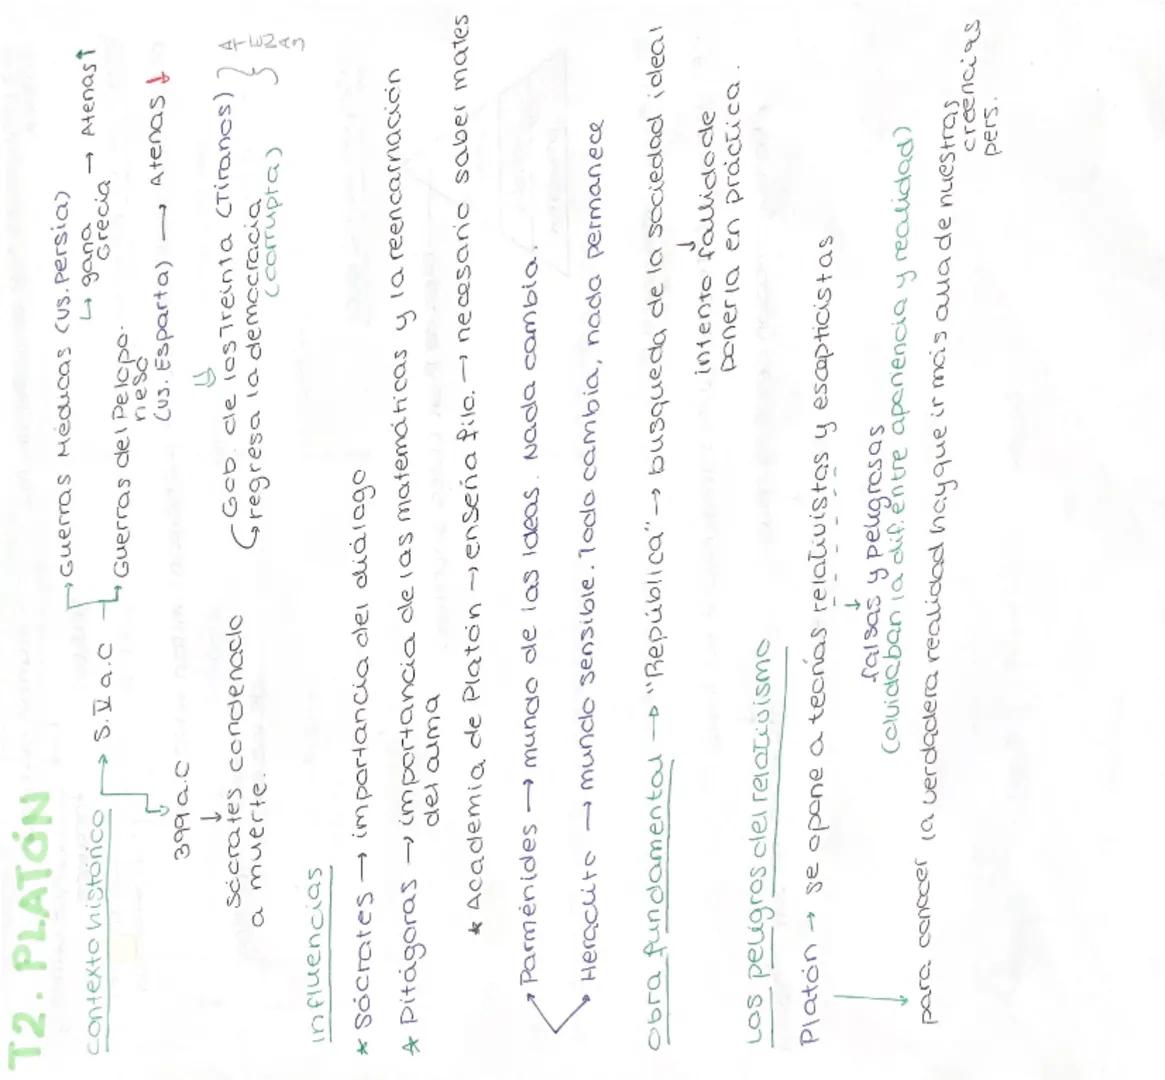 T2. PLATÓN
contexto histórico → S. V a.C
→ Guerras Médicas (vs. Persia)
↳ gana Grecia → Atenas ↑
→ Guerras del Pelopo-
neso
(vs. Esparta) → Atenas ↓
399 a.C
↓
Sócrates condenado
a muerte.
⇓
Gob. de los Treinta (Tiranos)
↳ regresa la democracia
(corrupta)
ATENAS
influencias
* Sócrates → importancia del diálogo
* Pitágoras → importancia de las matemáticas y la reencarnación
del alma
* Academia de Platón → enseña filo. → necesario saber mates
→ Parménides → mundo de las ideas. Nada cambia.
→ Heráclito → mundo sensible. Todo cambia, nada permanece
Obra fundamental → "República" → busqueda de la sociedad ideal
↓
intento fallido de
ponerla en práctica.
Los peligros del relativismo
Platón → se opone a teorías relativistas y escepticistas
↓
falsas y peligrosas
(olvidaban la dif. entre apariencia y realidad)
para conocer la verdadera realidad hay que ir más alla de nuestras
creencias
pers.